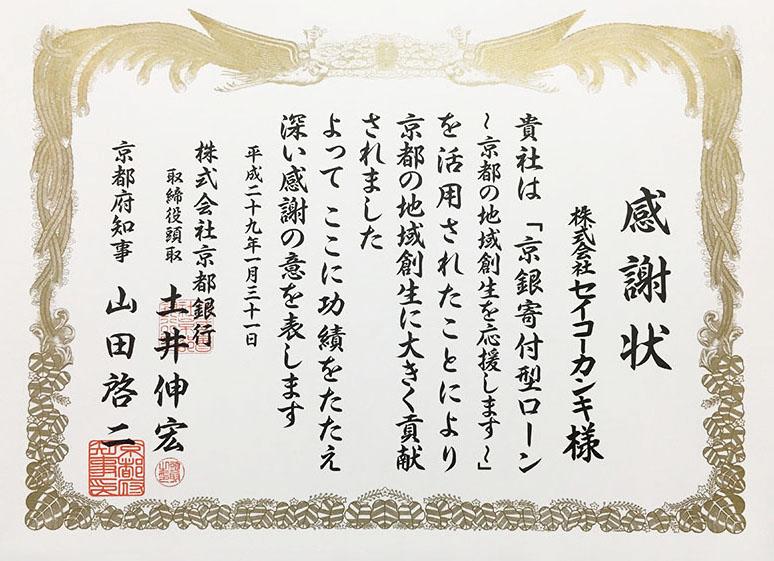 感謝状
株式会社セイコーカンキ様
貴社は「京銀寄付型ローン
~京都の地域創生を応援します~」
を活用されたことにより
京都の地域創生に大きく貢献
されました
よって ここに功績をたたえ
深い感謝の意を表します
平成二十九年一月三十一日
株式会社京都銀行
取締役頭取 土井伸宏
京都府知事 山田啓二
京都府
知事印